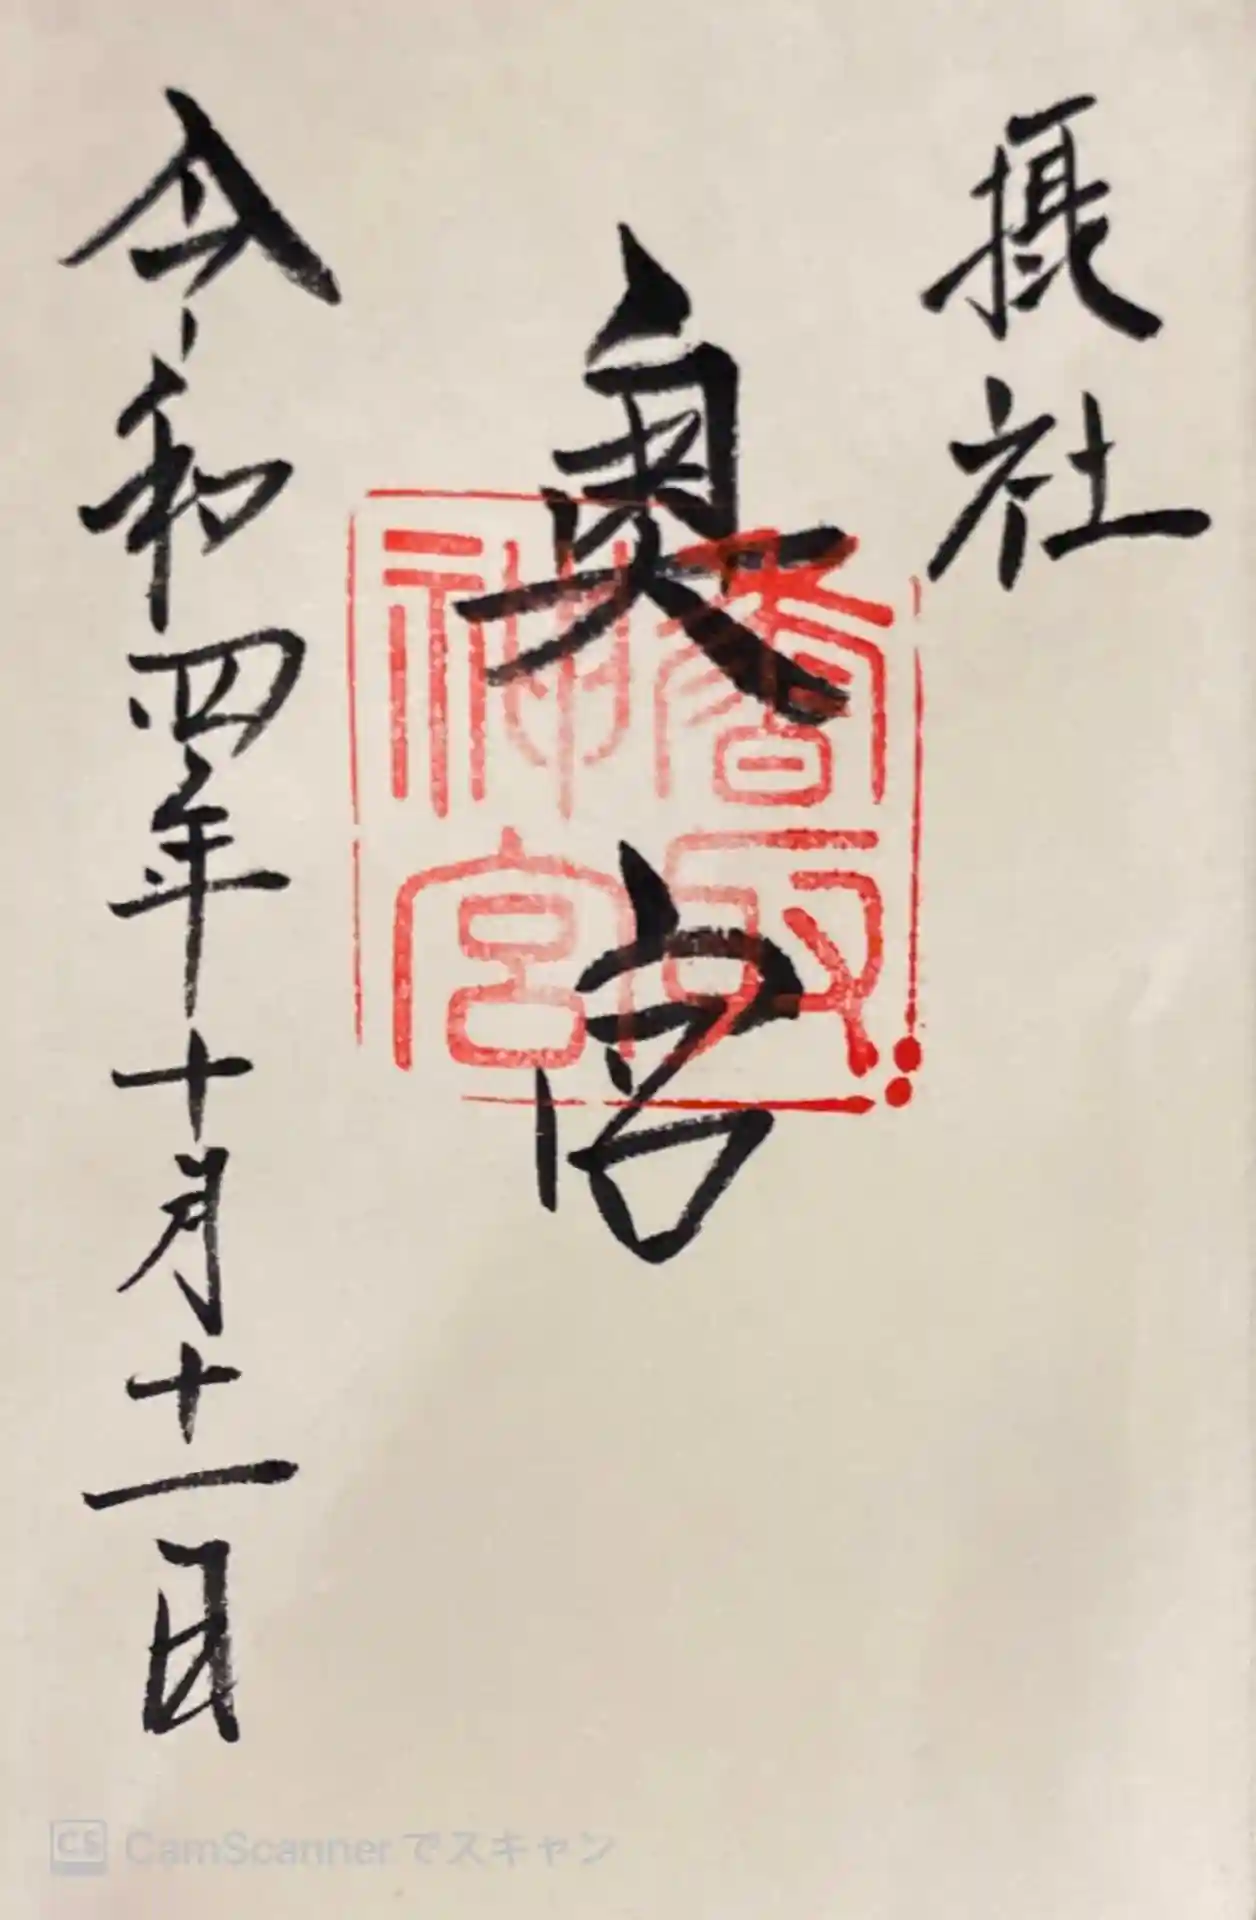 摂社
奥宮
香取
神宮
令和四年十月十一日
CS CamScannerでスキャン